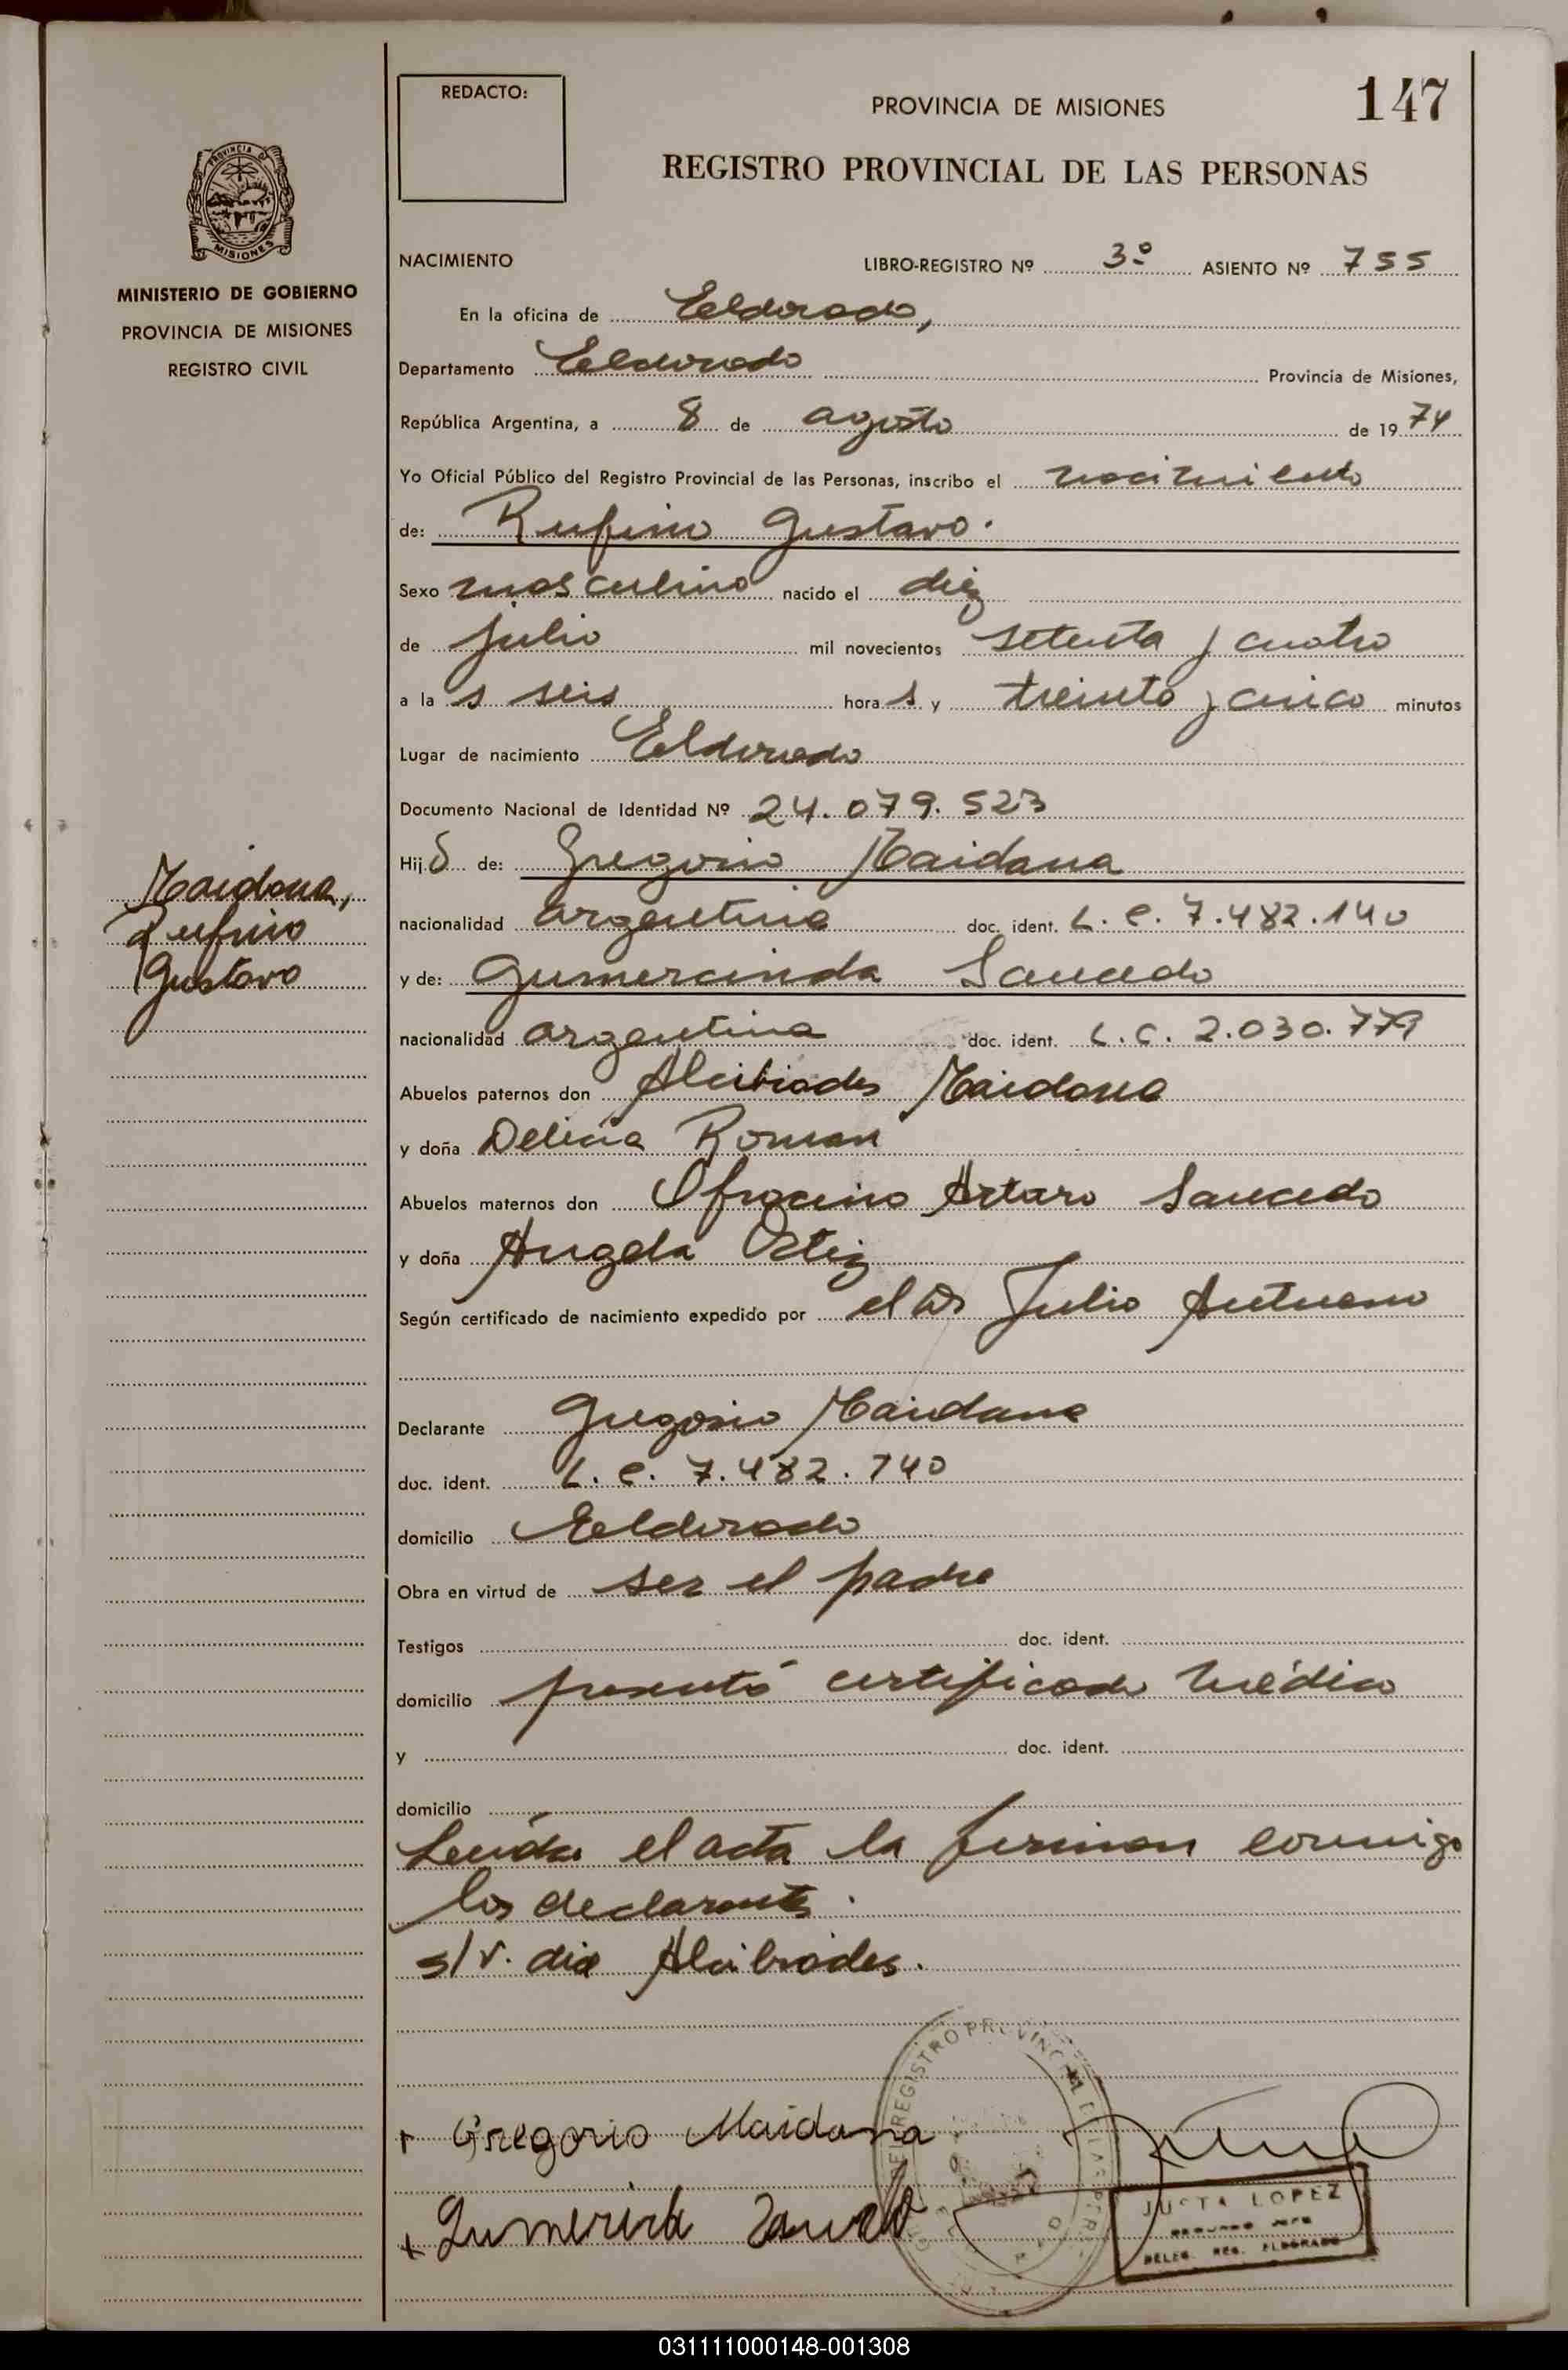 REDACTO:
PROVINCIA DE MISIONES
147
REGISTRO PROVINCIAL DE LAS PERSONAS
PROVINCIA DE
MISIONES
MINISTERIO DE GOBIERNO
PROVINCIA DE MISIONES
REGISTRO CIVIL
NACIMIENTO LIBRO-REGISTRO Nº 3º ASIENTO Nº 755
En la oficina de Eldorado,
Departamento Eldorado Provincia de Misiones,
República Argentina, a 8 de agosto de 19 74
Yo Oficial Público del Registro Provincial de las Personas, inscribo el nacimiento
de: Rufino Gustavo.
Sexo masculino nacido el diez
de julio mil novecientos setenta y cuatro
a la s seis hora s y treinta y cinco minutos
Lugar de nacimiento Eldorado
Documento Nacional de Identidad Nº 24.079.523
Hij o de: Gregorio Maidana
nacionalidad argentina doc. ident. L. e. 7.482.140
y de: Gumercinda Saucedo
nacionalidad argentina doc. ident. L. C. 2.030.779
Abuelos paternos don Alcibiades Maidana
y doña Delicia Roman
Abuelos maternos don Arturo Saucedo
y doña Angela Ortiz
Según certificado de nacimiento expedido por el Dr Julio
Declarante Gregorio Maidana
doc. ident. L. e. 7.482.740
domicilio Eldorado
Obra en virtud de ser el padre
Testigos doc. ident.
domicilio presentó certificado médico
y doc. ident.
domicilio
Leida el acta la firman conmigo
los declarantes.
s/r. dia Alcibiades.
Maidana,
Rufino
Gustavo
Gregorio Maidana
JUSTA LOPEZ
SEGUNDO JEFE
DELEG. REG. ELDORADO
031111000148-001308